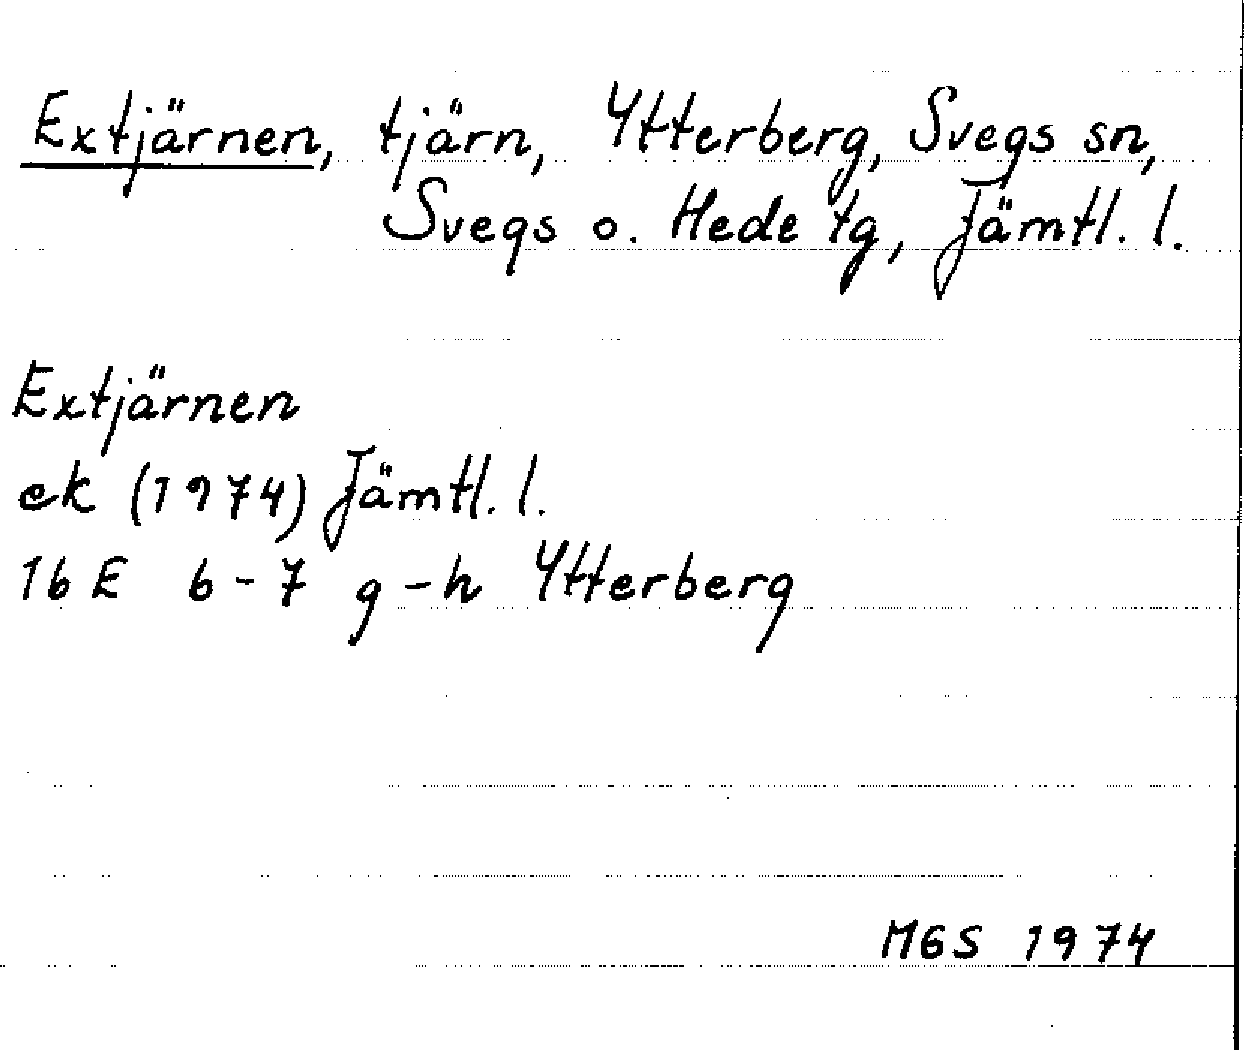 Extjärnen, tjärn, Ytterberg, Svegs sn,
Svegs o. Hede tg, Jämtl. l.
Extjärnen
ek (1974) Jämtl. l.
16 E 6-7 g-h Ytterberg
MGS 1974